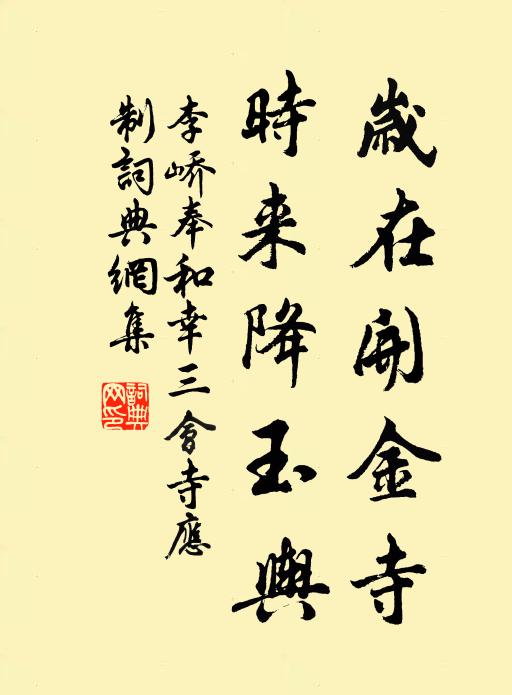 歲在開金寺
時来降玉輿
李嶠奉和幸三會寺應
制詞典網集
詞典
网印